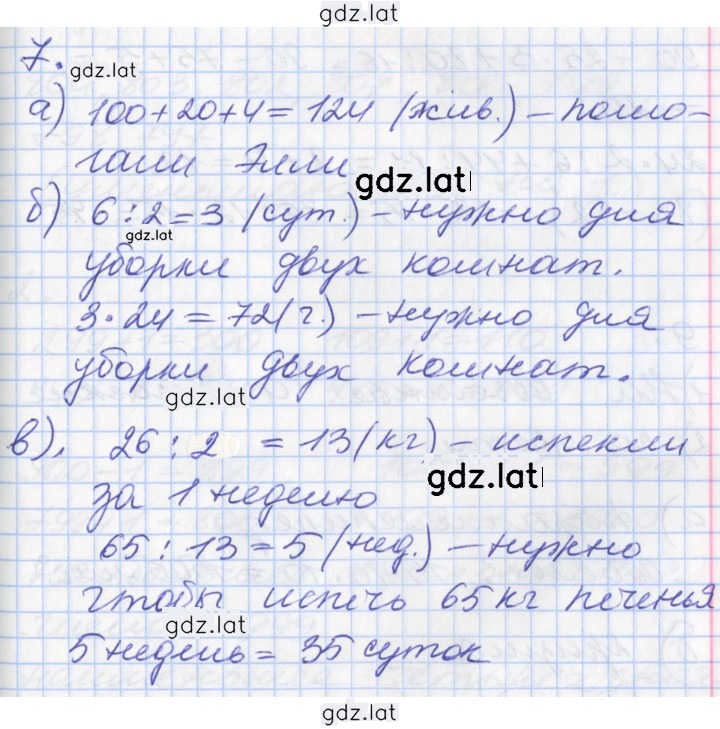 gdz.lat
7.
gdz.lat
а) 100+20+4=124 (жив.) – помо-
гали Элли
gdz.lat
б) 6:2=3 (сут.) – нужно для
gdz.lat
уборки двух комнат.
3·24=72(г.) – нужно для
уборки двух комнат.
gdz.lat
в). 26:2 = 13(кг) – испекли
gdz.lat
за 1 неделю
65:13=5 (нед.) – нужно
чтобы испечь 65кг печенья
gdz.lat
5 недель = 35 суток
gdz.lat